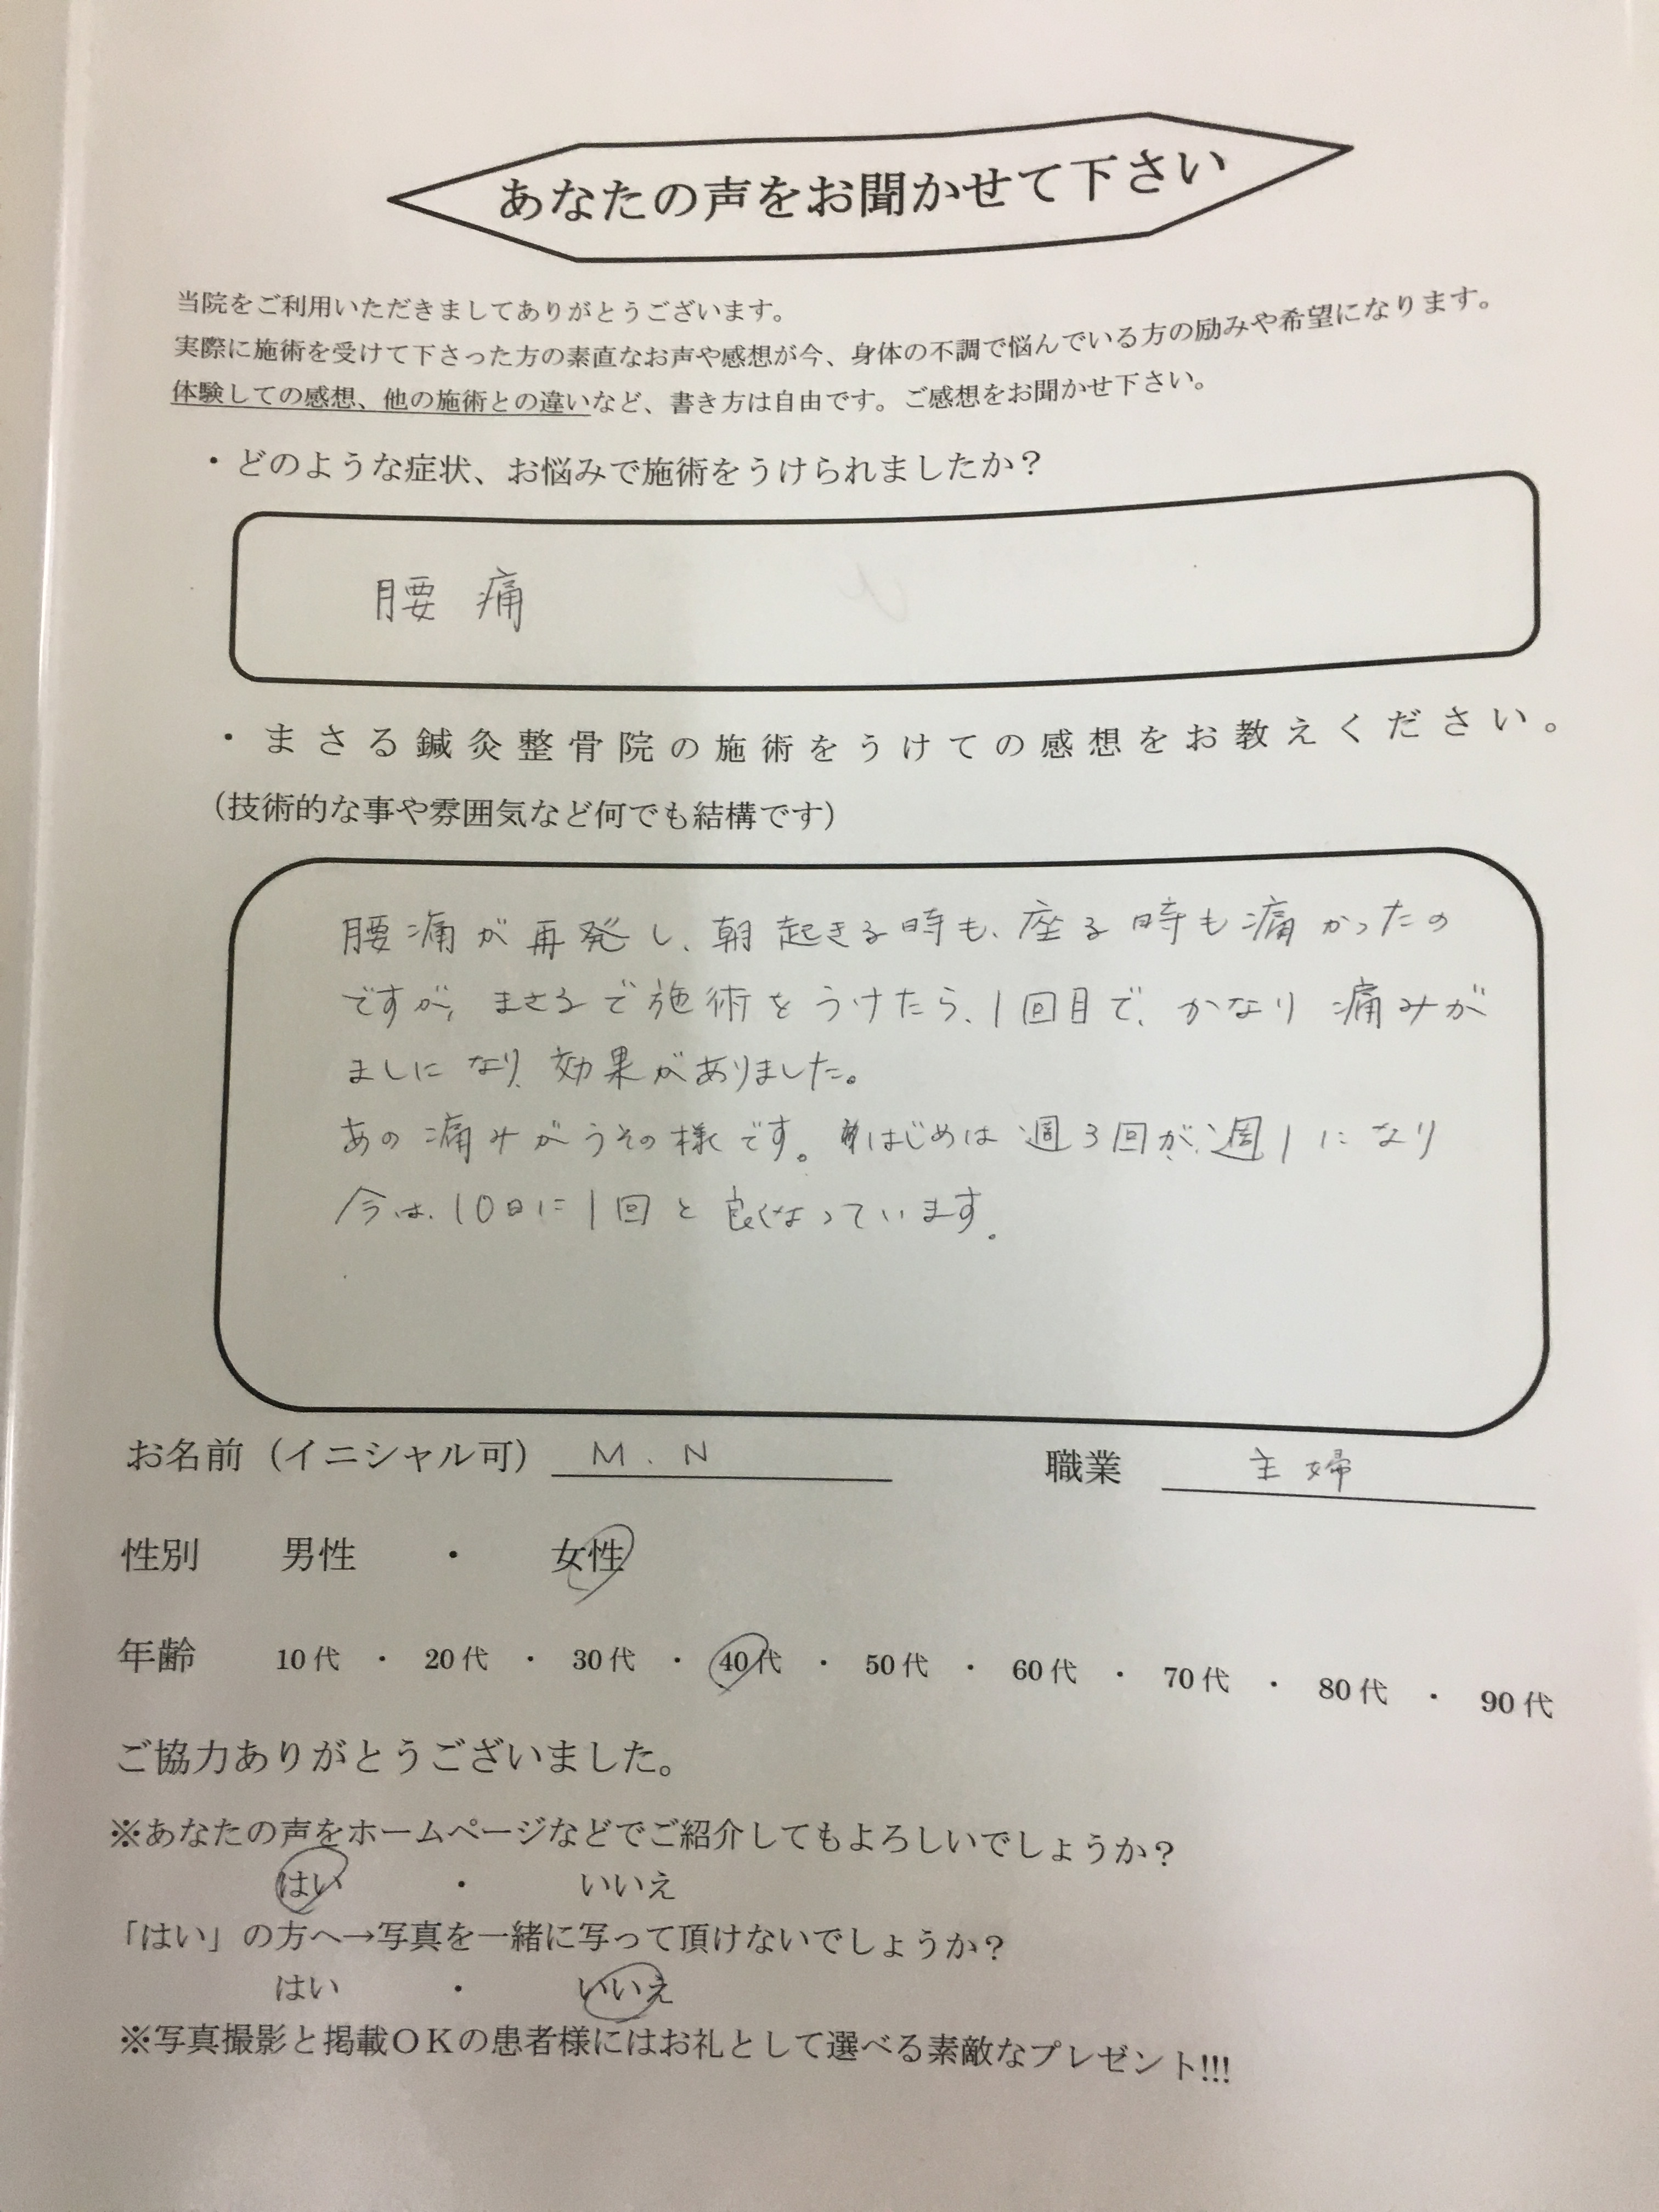 あなたの声をお聞かせて下さい
当院をご利用いただきましてありがとうございます。
実際に施術を受けて下さった方の素直なお声や感想が今、身体の不調で悩んでいる方の励みや希望になります。
体験しての感想、他の施術との違いなど、書き方は自由です。ご感想をお聞かせ下さい。
・どのような症状、お悩みで施術をうけられましたか？
腰痛
・まさる鍼灸整骨院の施術をうけての感想をお教えください。
（技術的な事や雰囲気など何でも結構です）
腰痛が再発し、朝起きる時も、座る時も痛かったの
ですが、まさるで施術をうけたら、1回目で、かなり痛みが
ましになり、効果がありました。
あの痛みがうその様です。はじめは週3回が、週1になり
今は、10日に1回と良くなっています。
お名前（イニシャル可） M.N 職業 主婦
性別 男性 ・ 女性
年齢 10代 ・ 20代 ・ 30代 ・ 40代 ・ 50代 ・ 60代 ・ 70代 ・ 80代 ・ 90代
ご協力ありがとうございました。
※あなたの声をホームページなどでご紹介してもよろしいでしょうか？
はい ・ いいえ
「はい」の方へ→写真を一緒に写って頂けないでしょうか？
はい ・ いいえ
※写真撮影と掲載ＯＫの患者様にはお礼として選べる素敵なプレゼント!!!